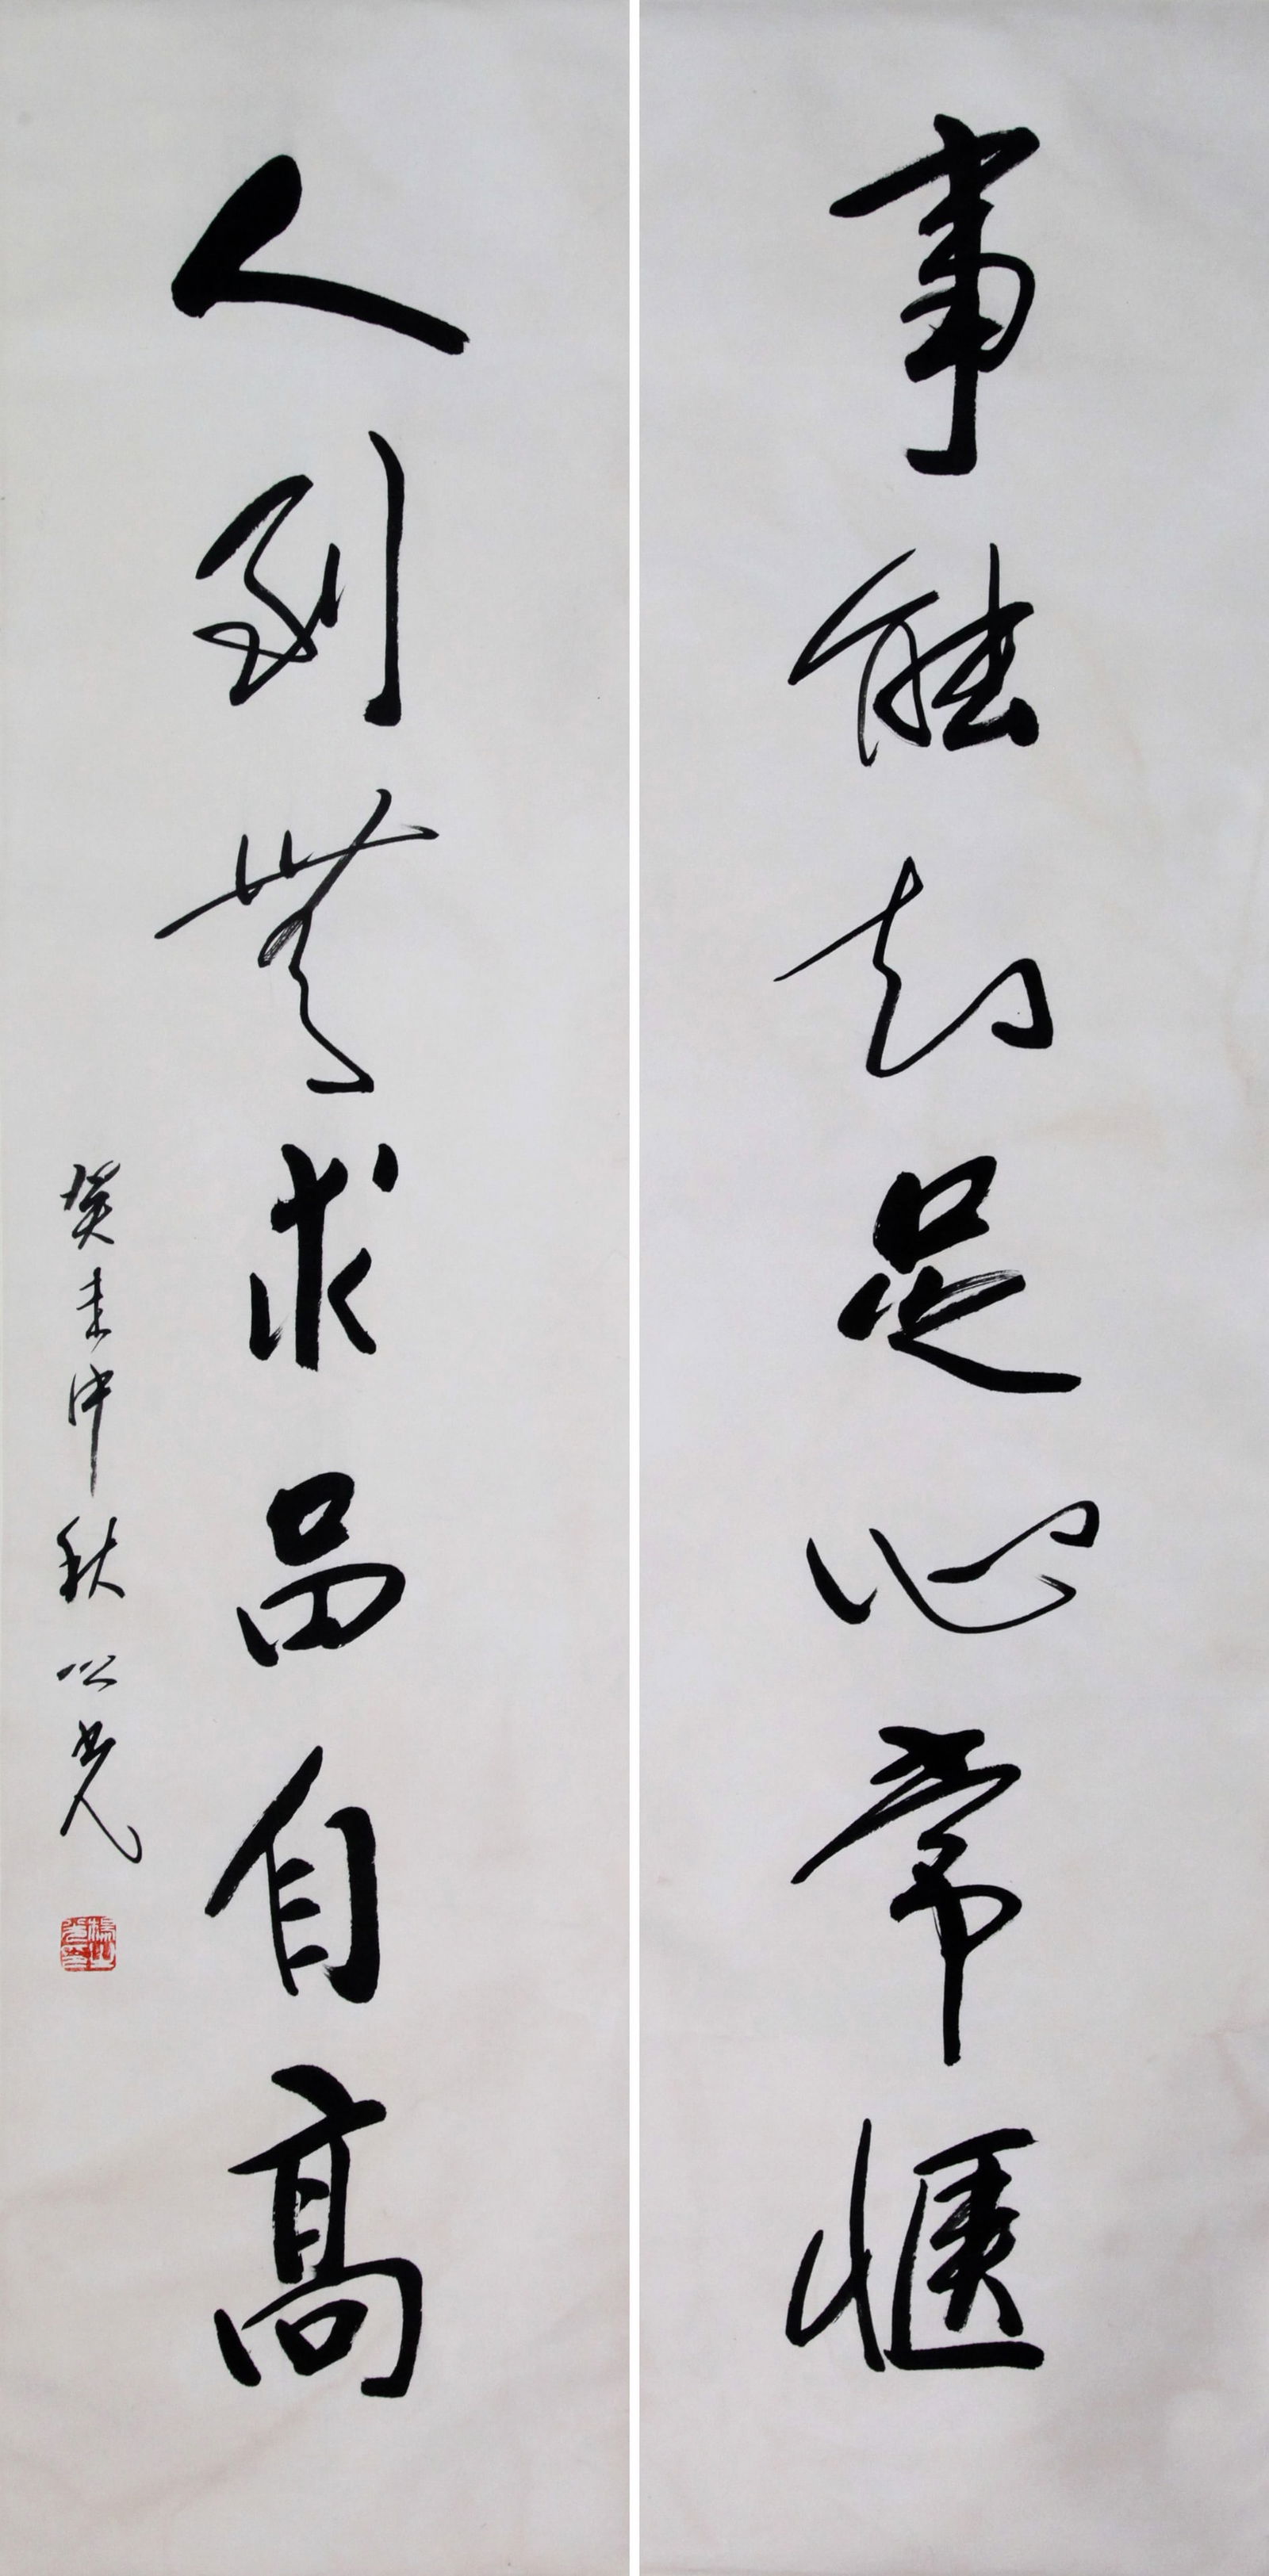 事能知足心常惬
人到无求品自高
癸未中秋 公光